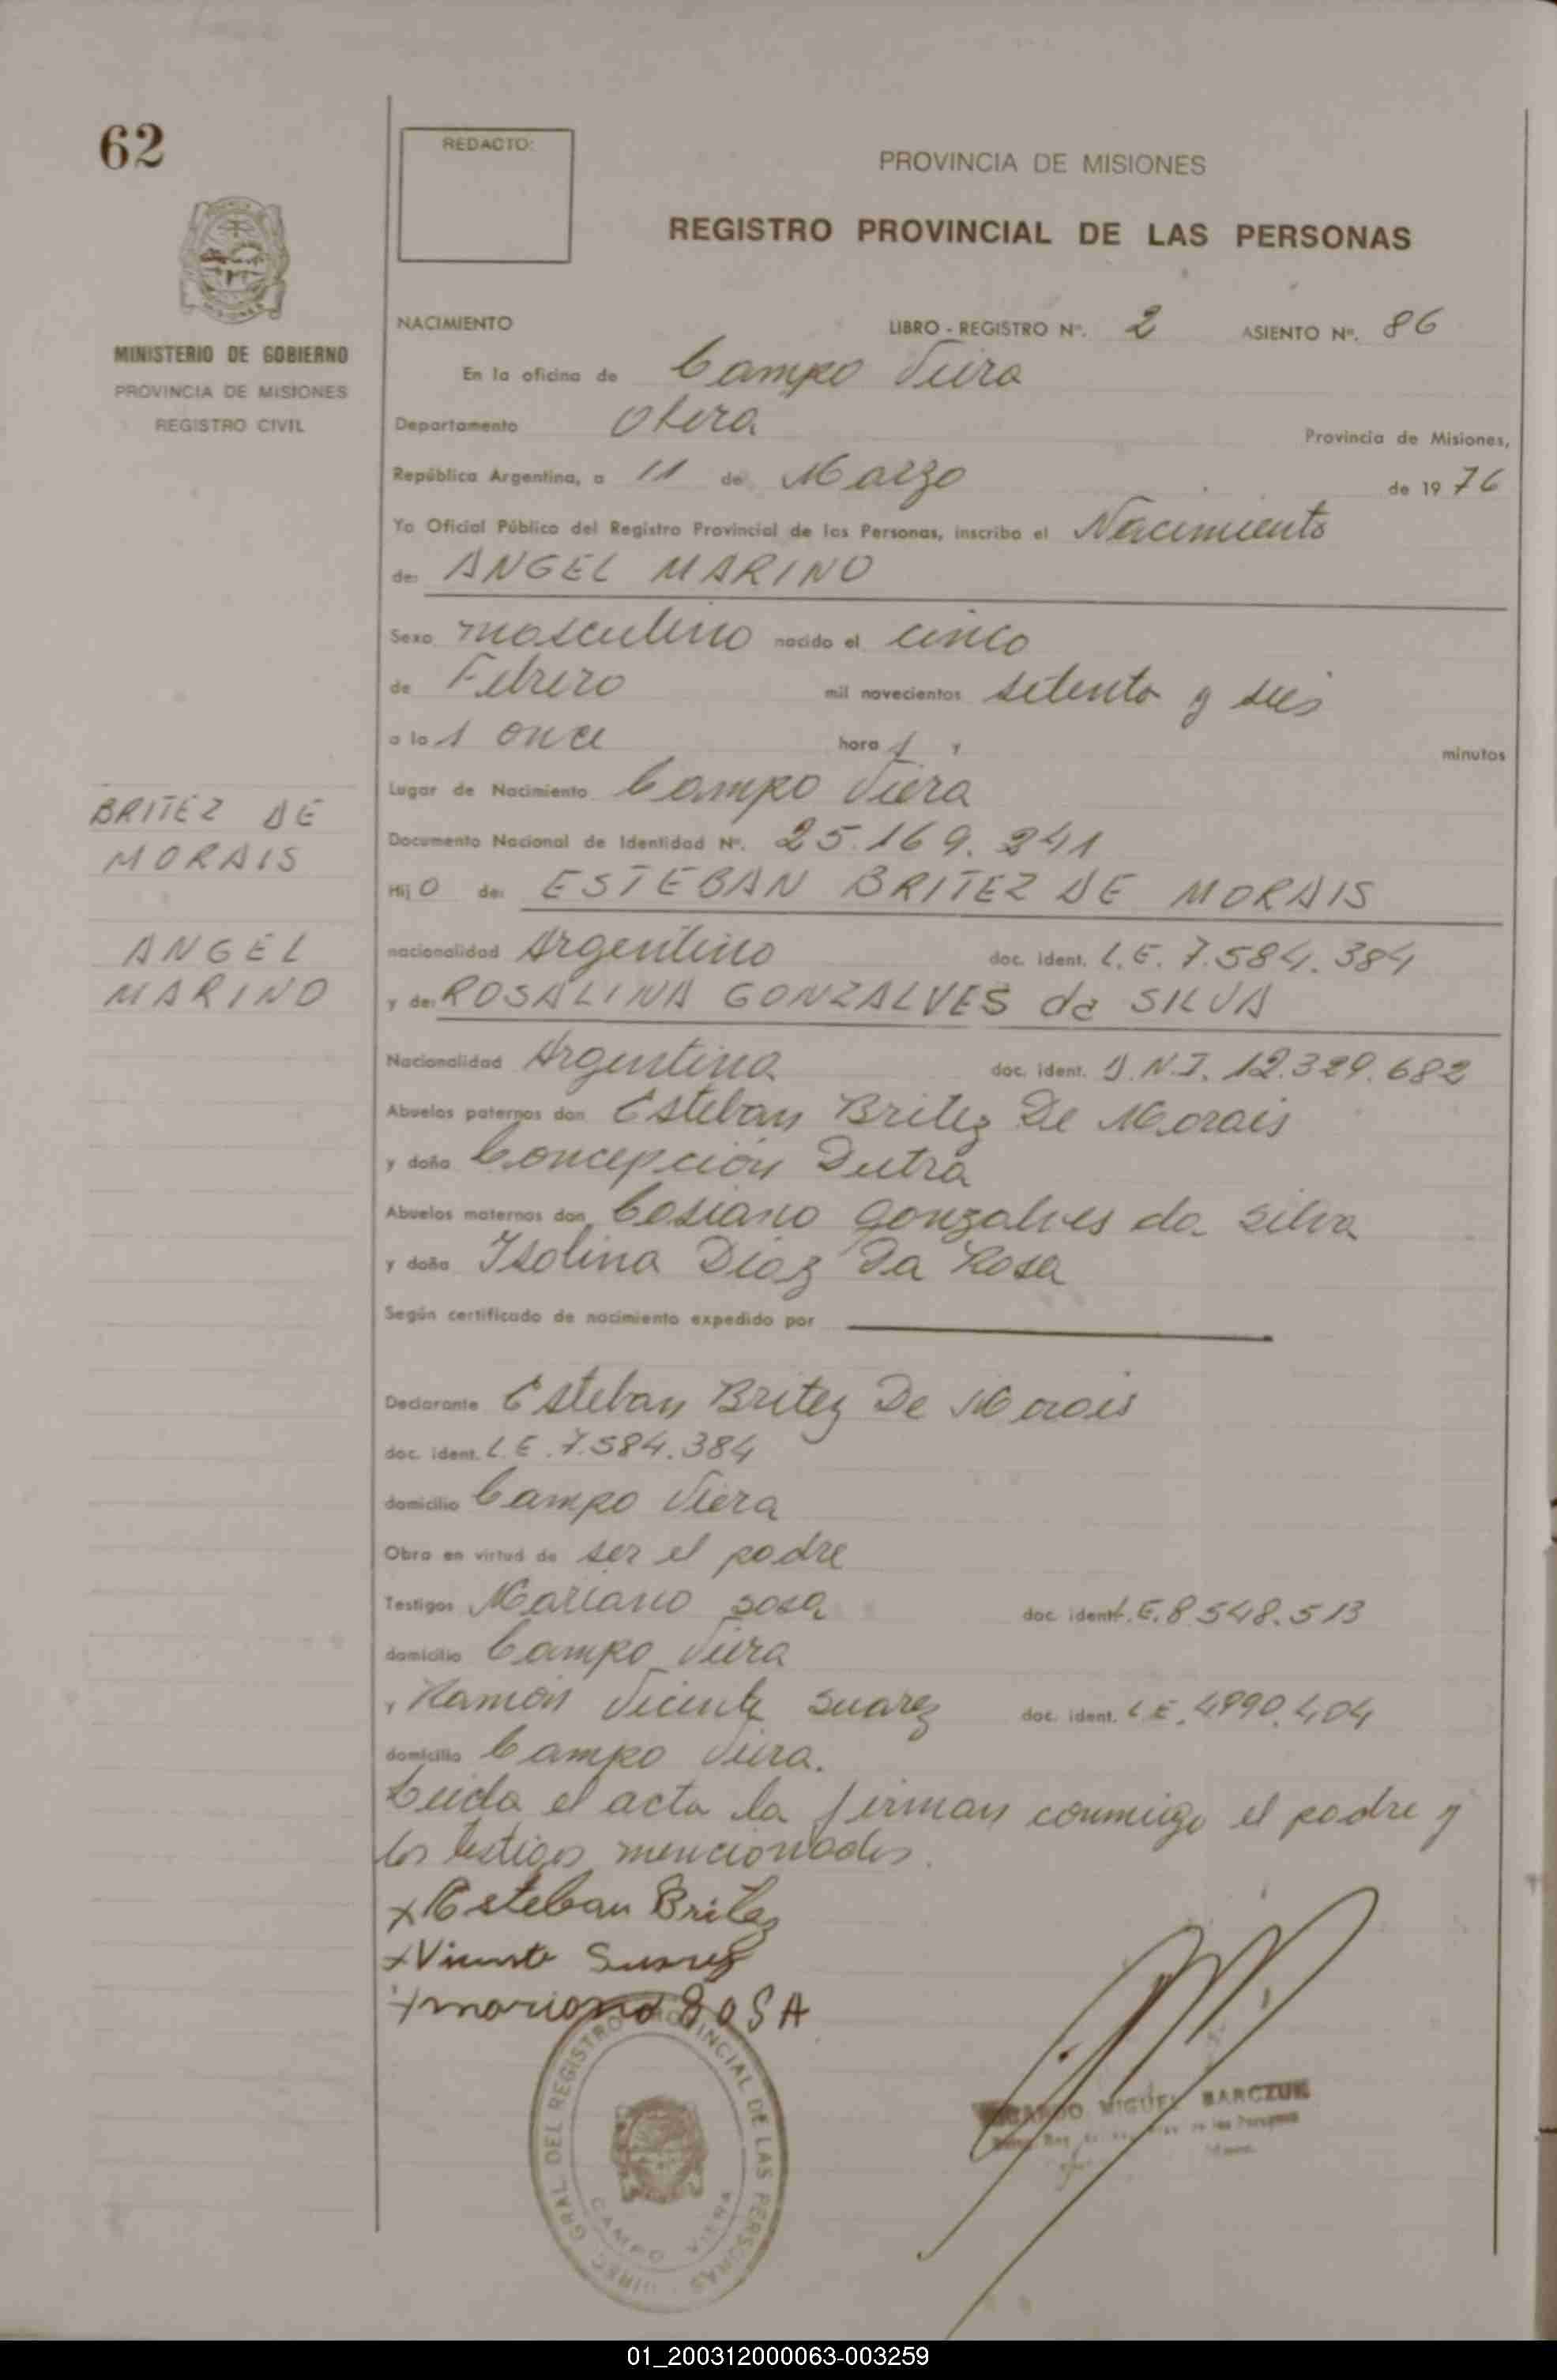 62
REDACTO:
PROVINCIA DE MISIONES
REGISTRO PROVINCIAL DE LAS PERSONAS
MINISTERIO DE GOBIERNO
PROVINCIA DE MISIONES
REGISTRO CIVIL
NACIMIENTO LIBRO - REGISTRO Nº. 2 ASIENTO Nº. 86
En la oficina de Campo Viera
Departamento Obera Provincia de Misiones,
República Argentina, a 11 de Marzo de 1976
Yo Oficial Público del Registro Provincial de las Personas, inscribo el Nacimiento
de: ANGEL MARINO
Sexo masculino nacido el cinco
de Febrero mil novecientos setenta y seis
a la s once hora s y minutos
Lugar de Nacimiento Campo Viera
BRITEZ DE
MORAIS
ANGEL
MARINO
Documento Nacional de Identidad Nº. 25.169.241
Hijo de: ESTEBAN BRITEZ DE MORAIS
nacionalidad Argentino doc. ident. L.E. 7.584.384
y de: ROSALINA GONZALVES da SILVA
Nacionalidad Argentina doc. ident. D.N.I. 12.329.682
Abuelos paternos don Esteban Britez De Morais
y doña Concepción Dutra
Abuelos maternos don Casiano Gonzalves da Silva
y doña Isolina Diaz Da Rosa
Según certificado de nacimiento expedido por
Declarante Esteban Britez De Morais
doc. ident. L.E. 7.584.384
domicilio Campo Viera
Obra en virtud de ser el padre
Testigos Mariano Sosa doc. ident. L.E. 8.548.513
domicilio Campo Viera
y Ramón Vicente Suarez doc. ident. L.E. 4990.404
domicilio Campo Viera.
Leida el acta la firman conmigo el padre y
los testigos mencionados.
x Esteban Britez
x Vicente Suarez
x mariano SOSA
DIREC. GRAL. DEL REGISTRO PROVINCIAL DE LAS PERSONAS
CAMPO VIERA
MIGUEL BARCZUK
01_200312000063-003259